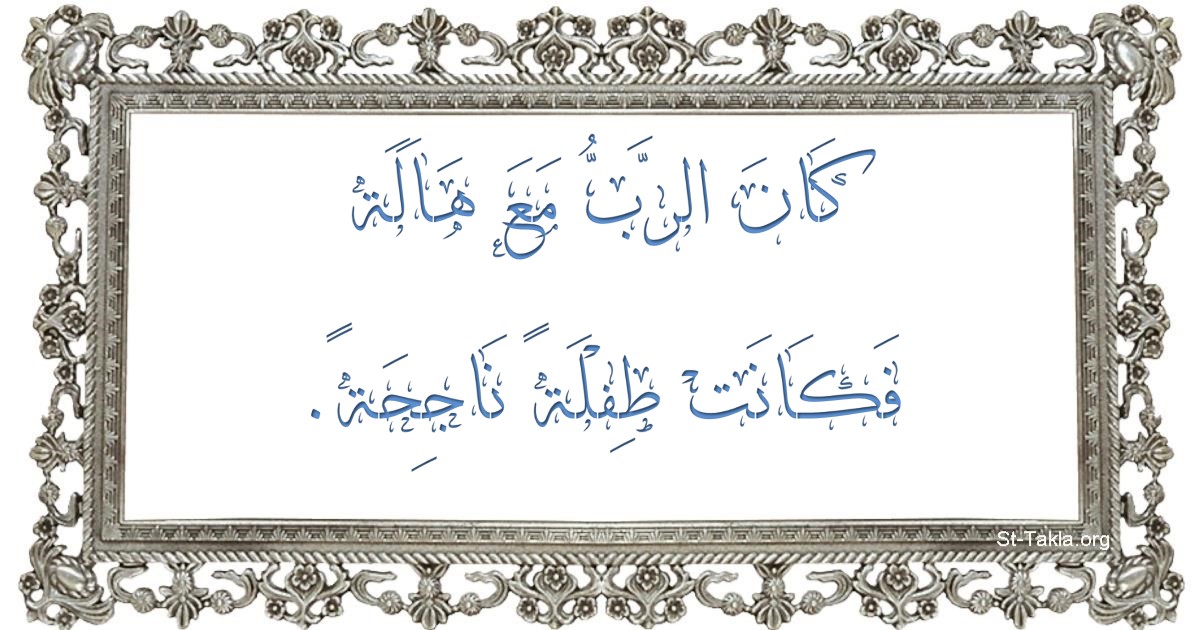 كَانَ الرَّبُّ مَعَ هَالَةً
فَكَانَت طِفْلَةً نَاجِحَةً.
St-Takla.org